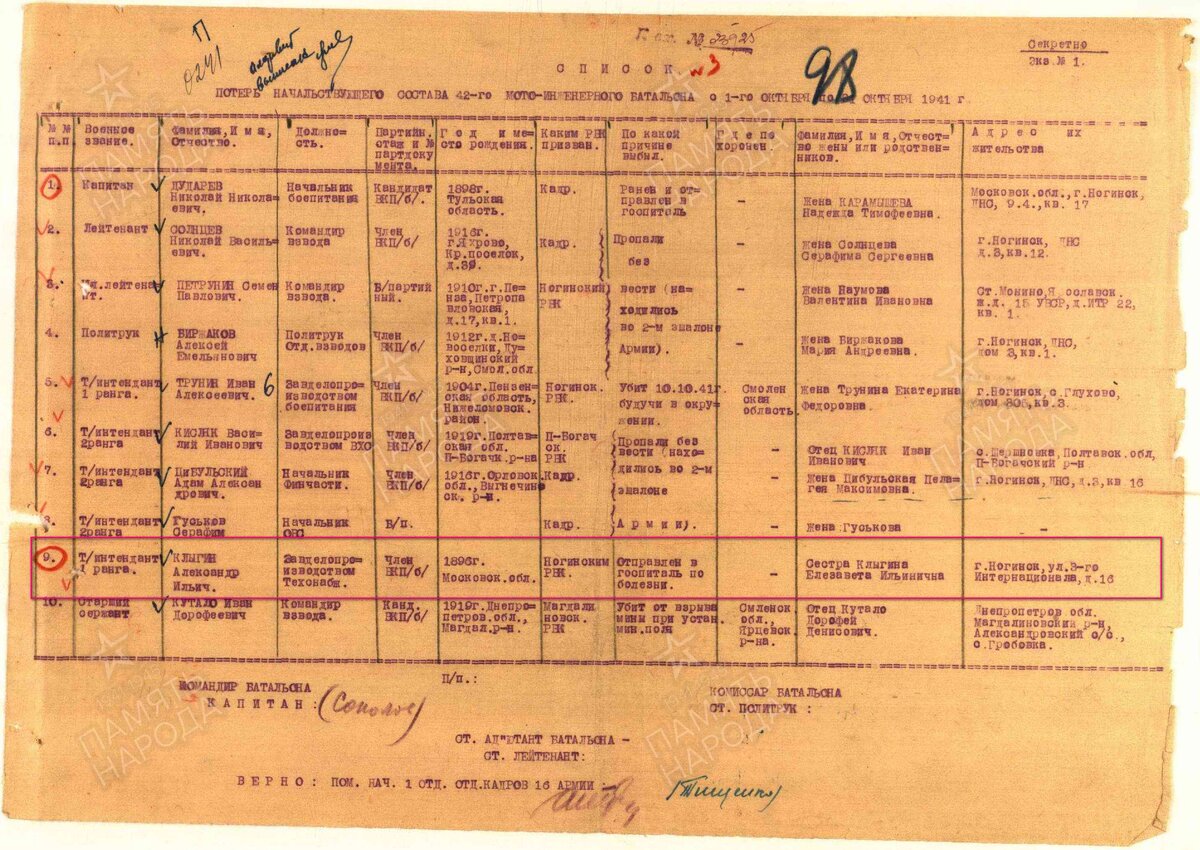 П
0241
К вх. № 33925
Секретно
Экз.№ 1.
СПИСОК №3
98
ПОТЕРЬ НАЧАЛЬСТВУЮЩЕГО СОСТАВА 42-го МОТО-ИНЖЕНЕРНОГО БАТАЛЬОНА с 1-го ОКТЯБРЯ по ОКТЯБРЯ 1941 г.
№ № п.п. Военное звание. Фамилия, Имя, Отчество. Должно-сть. Партийн. стаж и № партдоку мента. Год и ме-сто рождения. Каким РВК призван. По какой причине выбыл. Где по хоронен. Фамилия, Имя, Отчест-во жены или родствен-ников. Адрес их жительства
1. Капитан ДУДАРЕВ Николай Никола-евич. Начальник боепитания Кандидат ВКП/б/. 1898г. Тульская область. Кадр. Ранен и от-правлен в госпиталь - Жена КАРАМЫШЕВА Надежда Тимофеевна. Московск.обл., г.Ногинск, ДНС, 9.4., кв. 17
2. Лейтенант СОЛНЦЕВ Николай Василь-евич. Командир взвода Член ВКП/б/ 1916г. г.Яхрово, Кр.поселок, д.39. Кадр. Пропали без - Жена Солнцева Серафима Сергеевна г.Ногинск, ДНС д.3,кв.12.
3. Мл.лейтена нт. ПЕТРУНИН Семен Павлович. Командир взвода. Б/партий ный. 1910г.г.Пе-нза,Петропа вловская, д.17,кв.1. Ногинский РВК вести (на-ходились - Жена Наумова Валентина Ивановна Ст.Монино,Я ославск. ж.д. 15 УВСР,д.ИТР 22, кв. 1.
4. Политрук БИРЖАКОВ Алексей Емельянович Политрук Отд.взводов Член ВКП/б/ 1912г.д.Но-воселки,Ду-ховщинский р-н,Смол.обл во 2-м эшалоне Армии). - Жена Биржакова Мария Андреевна. г.Ногинск,ДНС, дом 3,кв.1.
5. Т/интендант 1 ранга. ТРУНИН Иван Алексеевич. 6 Завделопро-изводством боепитания Член ВКП/б/ 1904г.Пензен-ская область, Нижеломовск. район. Ногинск. РВК. Убит 10.10.41г. будучи в окру-жении. Смолен ская область. Жена Трунина Екатерина Федоровна г.Ногинск, с.Глухово, дом 305,кв.3.
6. Т/интендант 2ранга КИСЛЯК Васи-лий Иванович Завделопроиз водством ВХО Член ВКП/б/ 1919г.Полтав-ская обл. П-Богачк.р-на П-Богач ск. РВК Пропали без вести (нахо- - Отец КИСЛЯК Иван Иванович с.Шершновка,Полтавск.обл, П-Богачский р-н
7. Т/интендант 2ранга ЦИБУЛЬСКИЙ Адам Алексан дрович. Начальник Финчасти. Член ВКП/б/ 1916г.Орловск обл.,Выгнечино ск. р-н. Кадр. дились во 2-м эшалоне - Жена Цибульская Пела-гея Максимовна. г.Ногинск, ДНС,д.3,кв 16
8. Т/интендант 2ранга Гуськов Серафим Начальник ОВС Б/п. Кадр. Армии). - Жена Гуськова -
9. Т/интендант 1 ранга. КЛЫГИН Александр Ильич. Завделопро-изводством Техснабж. Член ВКП/б/ 1896г. Московск.обл. Ногинским РВК. Отправлен в госпиталь по болезни. - Сестра Клыгина Елезавета Ильинична г.Ногинск,ул.3-го Интернационала,д.16
10. Старший сержант КУТАЛО Иван Дорофеевич Командир взвода. Канд. ВКП/б/ 1919г.Днепро-петров.обл., Магдал.р-н. Магдали новск. РВК Убит от взрыва мины при устан. мин.поля Смоленск обл., Ярцевск р-на. Отец Кутало Дорофей Денисович. Днепропетров обл. Магдалиновский р-н, Александровский с/с., с.Гробовка.
П/п.:
КОМАНДИР БАТАЛЬОНА
КАПИТАН: (Соколов)
КОМИССАР БАТАЛЬОНА
СТ. ПОЛИТРУК :
СТ. АД"ЮТАНТ БАТАЛЬОНА -
СТ. ЛЕЙТЕНАНТ:
ВЕРНО: ПОМ. НАЧ. 1 ОТД. ОТД.КАДРОВ 16 АРМИИ - (Тищенко)
ПАМЯТЬ НАРОДА